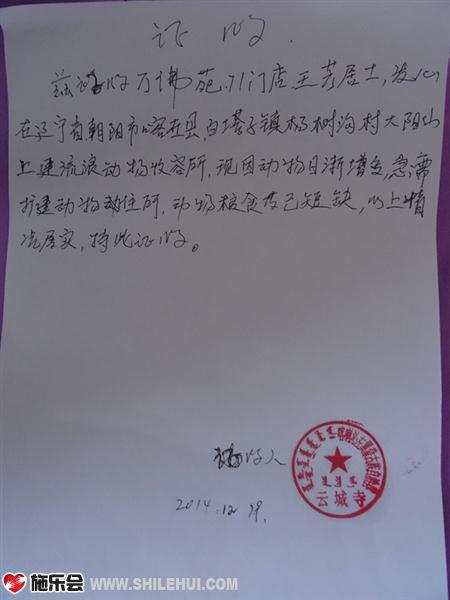 证明
兹证明万佛苑71门店王芳居士,发心
在辽宁省朝阳市喀左县,白塔子镇杨树沟村大阳山
上建流浪动物收容所,现因动物日渐增多,急需
扩建动物住所,动物粮食也已短缺,以上情
况属实,特此证明。
证明人
2014.12
云城寺
施乐会 WWW.SHILEHUI.COM